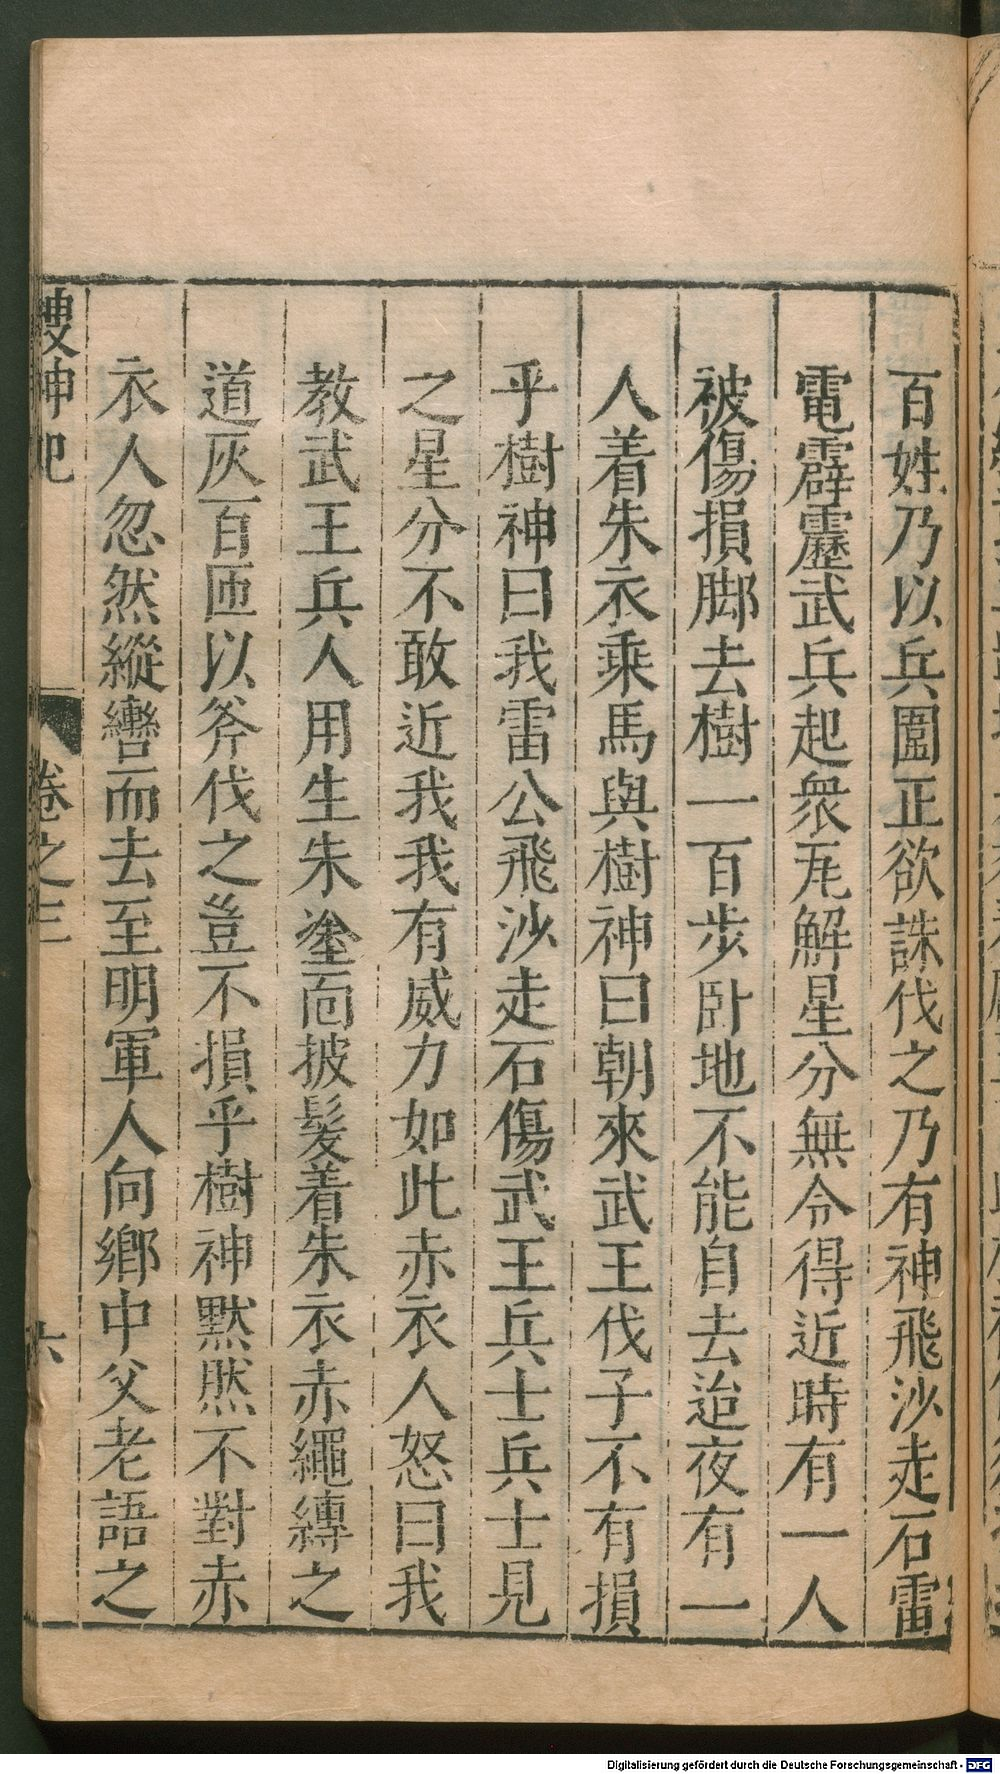 百姓乃以兵圍正欲誅伐之乃有神飛沙走石雷
電霹靂武兵起衆瓦解星分無令得近時有一人
被傷損脚去樹一百步卧地不能自去迨夜有一
人着朱衣乘馬與樹神曰朝來武王伐子不有損
乎樹神曰我雷公飛沙走石傷武王兵士兵士見
之星分不敢近我我有威力如此赤衣人怒曰我
教武王兵人用生朱塗面披髮着朱衣赤繩縛之
道灰百匝以斧伐之豈不損乎樹神默然不對赤
衣人忽然縱轡而去至明軍人向鄉中父老語之
搜神記 卷之三 六
Digitalisierung gefördert durch die Deutsche Forschungsgemeinschaft - DFG